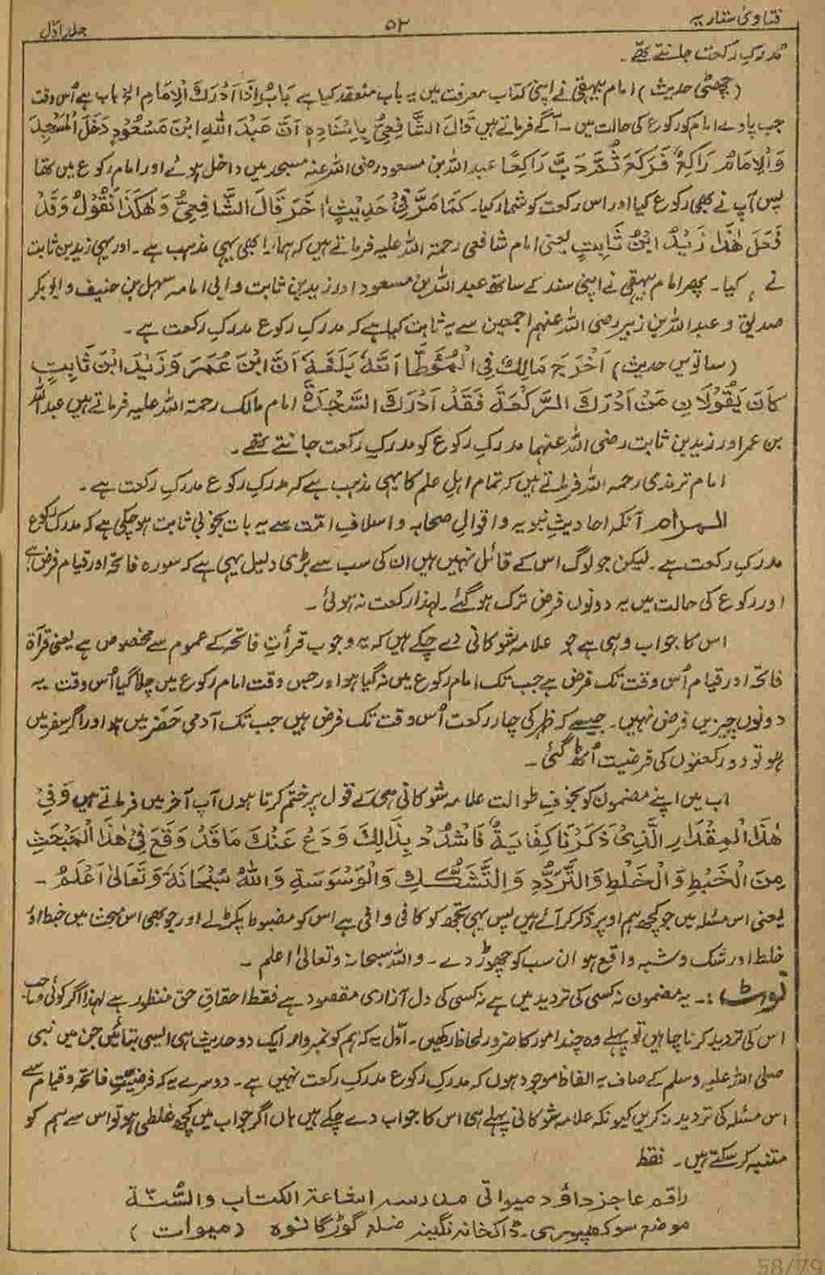 فتاویٰ ستاریہ ۵۲ جلد اوّل
مدرکِ رکعت جانتے تھے۔
(چھٹی حدیث) امام بیہقی نے اپنی کتاب معرفت میں یہ باب منعقد کیا ہے بَابُ اِذَا اَدْرَكَ الْاِمَامَ الخ باب ہے اُس وقت
جب پاوے امام کو رکوع کی حالت میں۔ آگے فرماتے ہیں قَالَ الشَّافِعِیُّ بِاِسْنَادِہٖ اَنَّ عَبْدَ اللہِ ابْنَ مَسْعُوْدٍ دَخَلَ الْمَسْجِدَ
وَالْاِمَامُ رَاكِعٌ فَرَكَعَ ثُمَّ دَبَّ رَاكِعًا عبداللہ بن مسعود رضی اللہ عنہ مسجد میں داخل ہوئے اور امام رکوع میں تھا
پس آپ نے بھی رکوع کیا اور اس رکعت کو شمار کیا۔ كَمَا مَرَّ فِیْ حَدِیْثٍ اٰخَرَ قَالَ الشَّافِعِیُّ وَھٰكَذَا نَقُوْلُ وَقَدْ
فَعَلَ ھٰذَا زَیْدُ ابْنُ ثَابِتٍ یعنی امام شافعی رحمۃ اللہ علیہ فرماتے ہیں کہ ہمارا بھی یہی مذہب ہے۔ اور یہی زید بن ثابت
نے کیا۔ پھر امام بیہقی نے اپنی سند کے ساتھ عبداللہ بن مسعود اور زید بن ثابت و ابی امامہ سہل بن حنیف و ابوبکر
صدیق و عبداللہ بن زبیر رضی اللہ عنہم اجمعین سے یہ ثابت کیا ہے کہ مدرکِ رکوع مدرکِ رکعت ہے۔
(ساتویں حدیث) اَخْرَجَ مَالِكٌ فِی الْمُؤَطَّا اَنَّہٗ بَلَغَہٗ اَنَّ ابْنَ عُمَرَ وَزَیْدَ ابْنَ ثَابِتٍ
كَانَ یَقُوْلَانِ مَنْ اَدْرَكَ الرَّكْعَةَ فَقَدْ اَدْرَكَ السَّجْدَةَ امام مالک رحمۃ اللہ علیہ فرماتے ہیں عبداللہ
بن عمر اور زید بن ثابت رضی اللہ عنہما مدرکِ رکوع کو مدرکِ رکعت جانتے تھے۔
امام ترمذی رحمہ اللہ فرماتے ہیں کہ تمام اہلِ علم کا یہی مذہب ہے کہ مدرکِ رکوع مدرکِ رکعت ہے۔
المرام آنکہ احادیثِ نبویہ و اقوالِ صحابہ و اسلافِ امت سے یہ بات بخوبی ثابت ہوچکی ہے کہ مدرکِ رکوع
مدرکِ رکعت ہے۔ لیکن جو لوگ اس کے قائل نہیں ہیں ان کی سب سے بڑی دلیل یہی ہے کہ سورہ فاتحہ اور قیام فرض ہے
اور رکوع کی حالت میں یہ دونوں فرض ترک ہوگئے۔ لہٰذا رکعت نہ ہوئی۔
اس کا جواب وہی ہے جو علامہ شوکانی دے چکے ہیں کہ یہ وجوبِ قرأت فاتحہ کے عموم سے مخصوص ہے یعنی قرآۃ
فاتحہ اور قیام اُس وقت تک فرض ہے جب تک امام رکوع میں نہ گیا ہو اور جس وقت امام رکوع میں چلا گیا اُس وقت یہ
دونوں چیزیں فرض نہیں۔ جیسے کہ ظہر کی چار رکعت اُس وقت تک فرض ہیں جب تک آدمی حَضَر میں ہو اور اگر سفر میں
ہو تو دو رکعتوں کی فرضیت اُٹھ گئی۔
اب میں اپنے مضمون کو بخوفِ طوالت علامہ شوکانی ہی کے قول پر ختم کرتا ہوں آپ آخر میں فرماتے ہیں وَفِیْ
ھٰذَا الْمِقْدَارِ الَّذِیْ ذَكَرْنَا كِفَایَةٌ فَاشْدُدْ بِذَالِكَ وَدَعْ عَنْكَ مَا قَدْ وَقَعَ فِیْ ھٰذَا الْمَبْحَثِ
مِنَ الْخَبْطِ وَالْخَلْطِ وَالتَّرَدُّدِ وَالتَّشَكُّكِ وَالْوَسْوَسَةِ وَاللہُ سُبْحَانَہٗ وَتَعَالٰی اَعْلَمُ۔
یعنی اس مسئلہ میں جو کچھ ہم اوپر ذکر کر آئے ہیں پس یہی تجھ کو کافی وافی ہے اس کو مضبوط پکڑ لے اور جو بھی اس بحث میں خبط اور
خلط اور شک و شبہ واقع ہو ان سب کو چھوڑ دے۔ واللہ سبحانہٗ وتعالیٰ اعلم۔
نوٹ:۔ یہ مضمون نہ کسی کی تردید میں ہے نہ کسی کی دل آزاری مقصود ہے فقط احقاقِ حق منظور ہے لہٰذا اگر کوئی صاحب
اس کی تردید کرنا چاہیں تو پہلے وہ چند امور کا ضرور لحاظ رکھیں۔ اوّل یہ کہ ہم کو نمبروار ایک دو حدیث ہی ایسی بتائیں جن میں نبی
صلی اللہ علیہ وسلم کے صاف یہ الفاظ موجود ہوں کہ مدرکِ رکوع مدرکِ رکعت نہیں ہے۔ دوسرے یہ کہ فرضیتِ فاتحہ و قیام سے
اس مسئلہ کی تردید نہ کریں کیونکہ علامہ شوکانی پہلے ہی اس کا جواب دے چکے ہیں ہاں اگر جواب میں کچھ غلطی ہو تو اس سے ہم کو
متنبہ کرسکتے ہیں۔ فقط
راقم عاجز داؤد میواتی مدرسہ اشاعۃ الکتاب والسُّنَّۃ
موضع سوکھپوری۔ ڈاکخانہ نگینہ ضلع گوڑگانوہ (میوات)
58/79